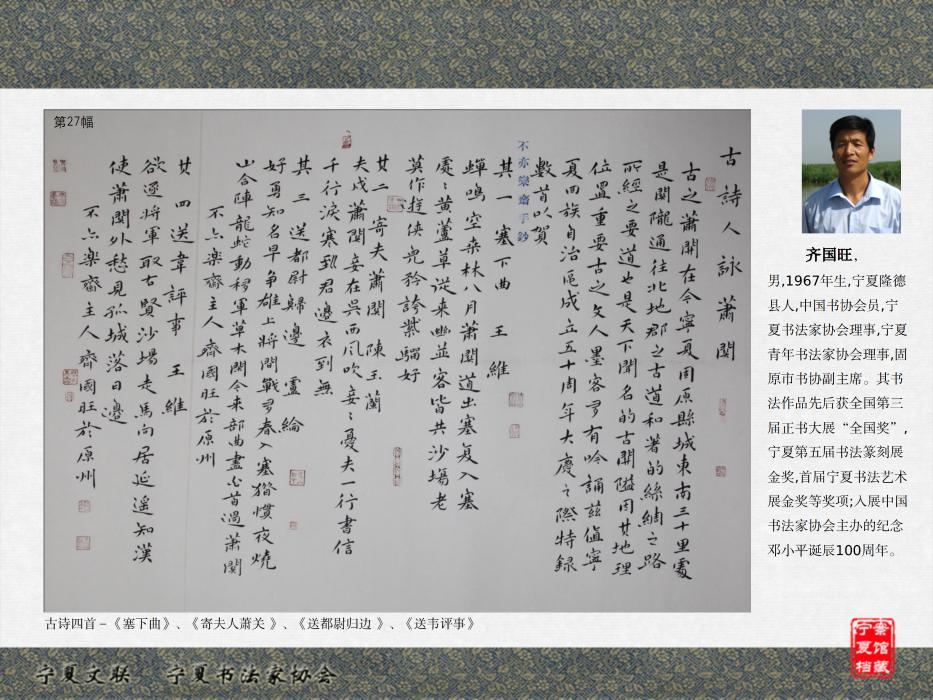 第27幅
古詩人詠蕭關
古之蕭關在今寧夏固原縣城東南三十里處
是關隴通往北地郡之古道和著的絲綢之路
所經之要道也是天下聞名的古關隘因其地理
位置重要古之文人墨客多有吟誦茲值寧
夏回族自治區成立五十周年大慶之際特録
數首以賀
不亦樂齋手鈔
其一 塞下曲 王維
蟬鳴空桑林八月蕭關道出塞复入塞
處處黃蘆草從来幽並客皆共沙場老
莫作遊俠兒矜誇紫騮好
其二 寄夫蕭關 陳玉蘭
夫戍蕭關妾在吳西風吹妾妾憂夫一行書信
千行淚寒到君邊衣到無
其三 送都尉歸邊 盧綸
好勇知名早爭雄上將間戰多春入塞猎慣夜燒
山合陣龍蛇動移軍草木閑今来部曲盡白首過蕭關
不亦樂齋主人齊國旺於原州
其四 送韋評事 王維
欲逐將軍取右賢沙場走馬向居延遥知漢
使蕭關外愁見孤城落日邊
不亦樂齋主人齊國旺於原州
齐国旺，
男,1967年生,宁夏隆德
县人,中国书协会员,宁
夏书法家协会理事,宁夏
青年书法家协会理事,固
原市书协副主席。其书
法作品先后获全国第三
届正书大展“全国奖”,
宁夏第五届书法篆刻展
金奖,首届宁夏书法艺术
展金奖等奖项;入展中国
书法家协会主办的纪念
邓小平诞辰100周年。
古诗四首－《塞下曲》、《寄夫人萧关 》、《送都尉归边 》、《送韦评事》
宁夏文联 宁夏书法家协会
宁夏档案馆藏